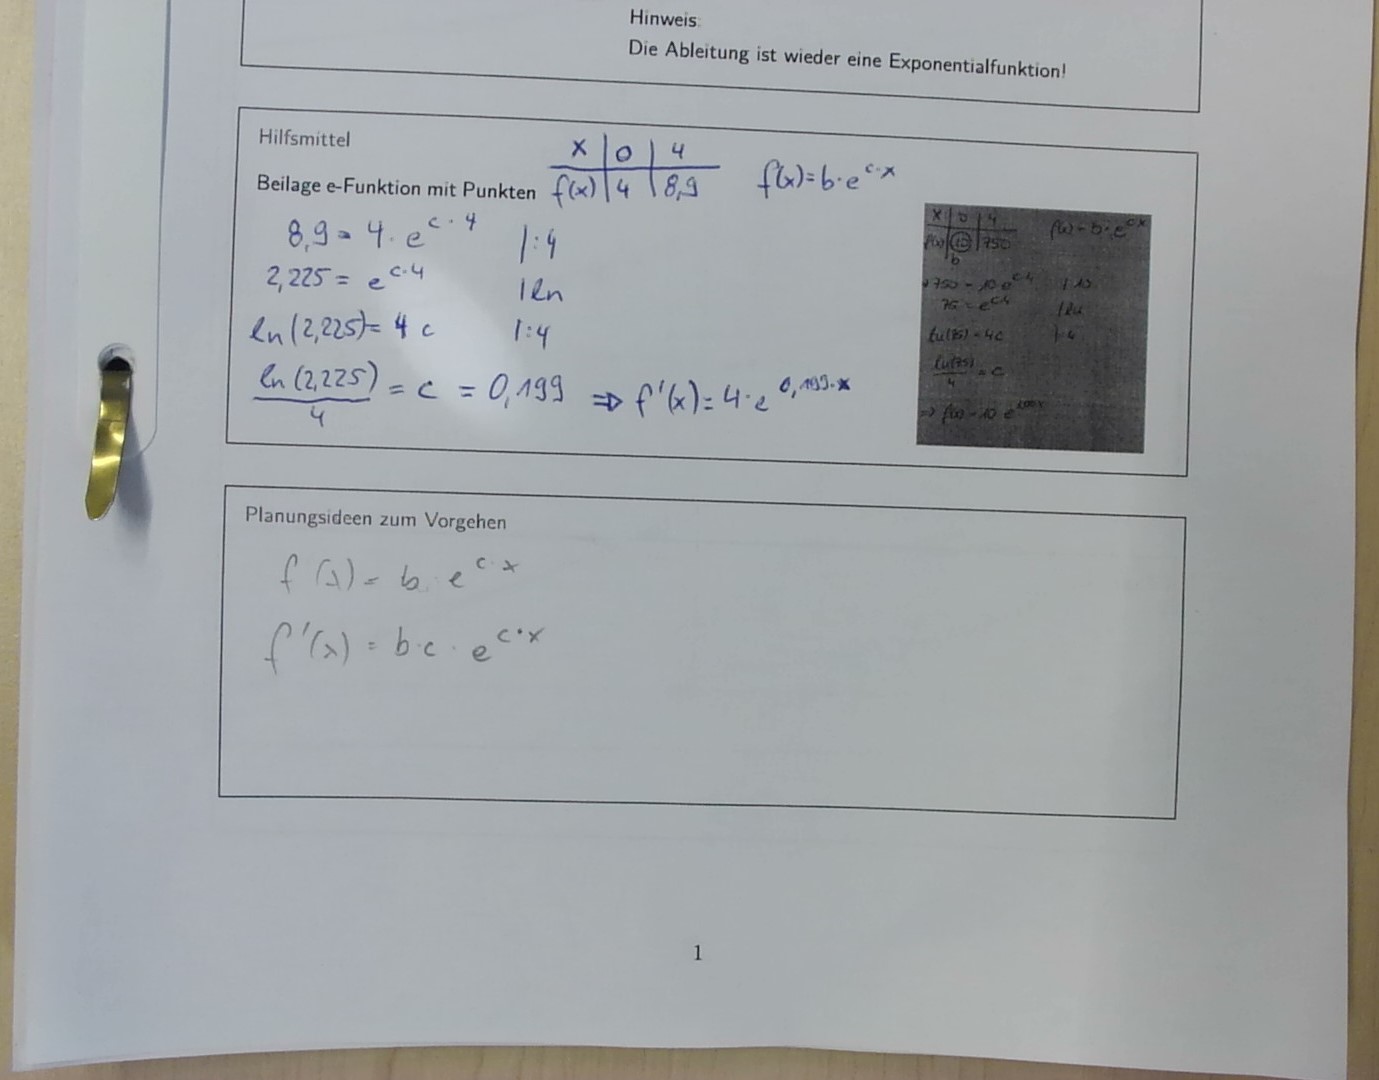 Hinweis:
Die Ableitung ist wieder eine Exponentialfunktion!
Hilfsmittel
Beilage e-Funktion mit Punkten
x | 0 | 4
f(x) | 4 | 8,9
f(x)=b·e^(c·x)
8,9 = 4·e^(c·4) |:4
2,225 = e^(c·4) |ln
ln(2,225)= 4c |:4
ln(2,225)/4 = c = 0,199 ⇒ f'(x)=4·e^(0,199·x)
x | 0 | 4
f(x) | 10 | 750
b
f(x) = b·e^(cx)
750 = 10·e^(c·4) |:10
75 = e^(c4) |ln
ln(75) = 4c |:4
ln(75)/4 = c
⇒ f(x) = 10·e
Planungsideen zum Vorgehen
f(x) = b·e^(c·x)
f'(x) = b·c·e^(c·x)
1